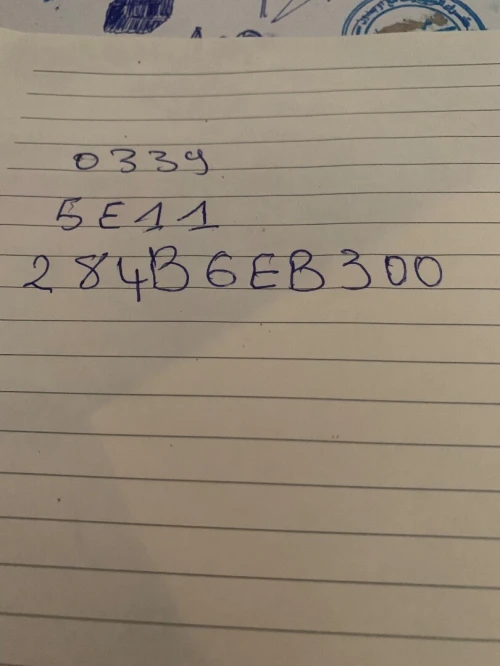 0339
5E11
284B6EB300